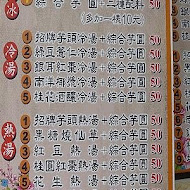 冰 綜合芋圓+三種配料 50
(多加一種10元)
冷湯
1 招牌芋頭冷湯+綜合芋圓 50
2 綠豆薏仁冷湯+綜合芋圓 50
3 銀耳紅棗冷湯+綜合芋圓 50
4 南洋椰奶冷湯+綜合芋圓 50
5 桂花酒釀冷湯+綜合芋圓 50
熱湯
1 招牌芋頭熱湯+綜合芋圓 50
2 黑糖燒仙草+綜合芋圓 50
3 紅豆熱湯+綜合芋圓 50
4 桂圓紅棗熱湯+綜合芋圓 50
5 花生熱湯+綜合芋圓 50